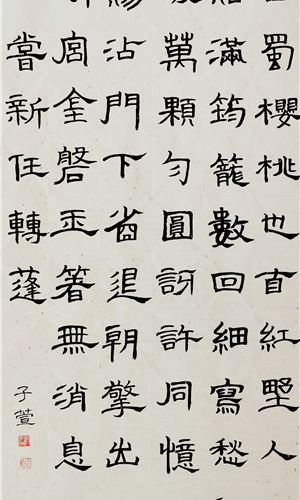 蜀櫻桃也自紅野人
滿筠籠數回細寫愁
萬顆勻圓訝許同憶
賜沾門下省退朝擎出
宮金磐玉箸無消息
嘗新任轉蓬
子萱